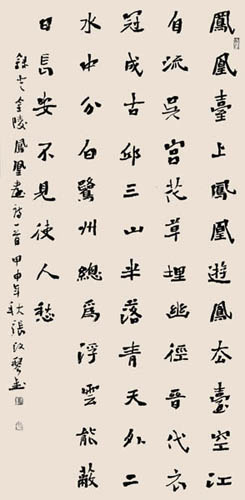 鳳凰臺上鳳凰遊鳳去臺空江
自流吳宮花草埋幽徑晉代衣
冠成古邱三山半落青天外二
水中分白鷺州總爲浮雲能蔽
日長安不見使人愁
錄金陵鳳凰臺詩一首甲申年秋張改琴書